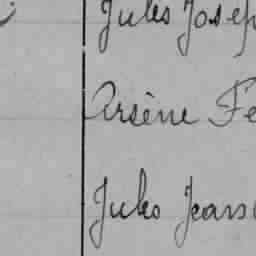 Jules Josep
Arsène Fe
Jules Jean